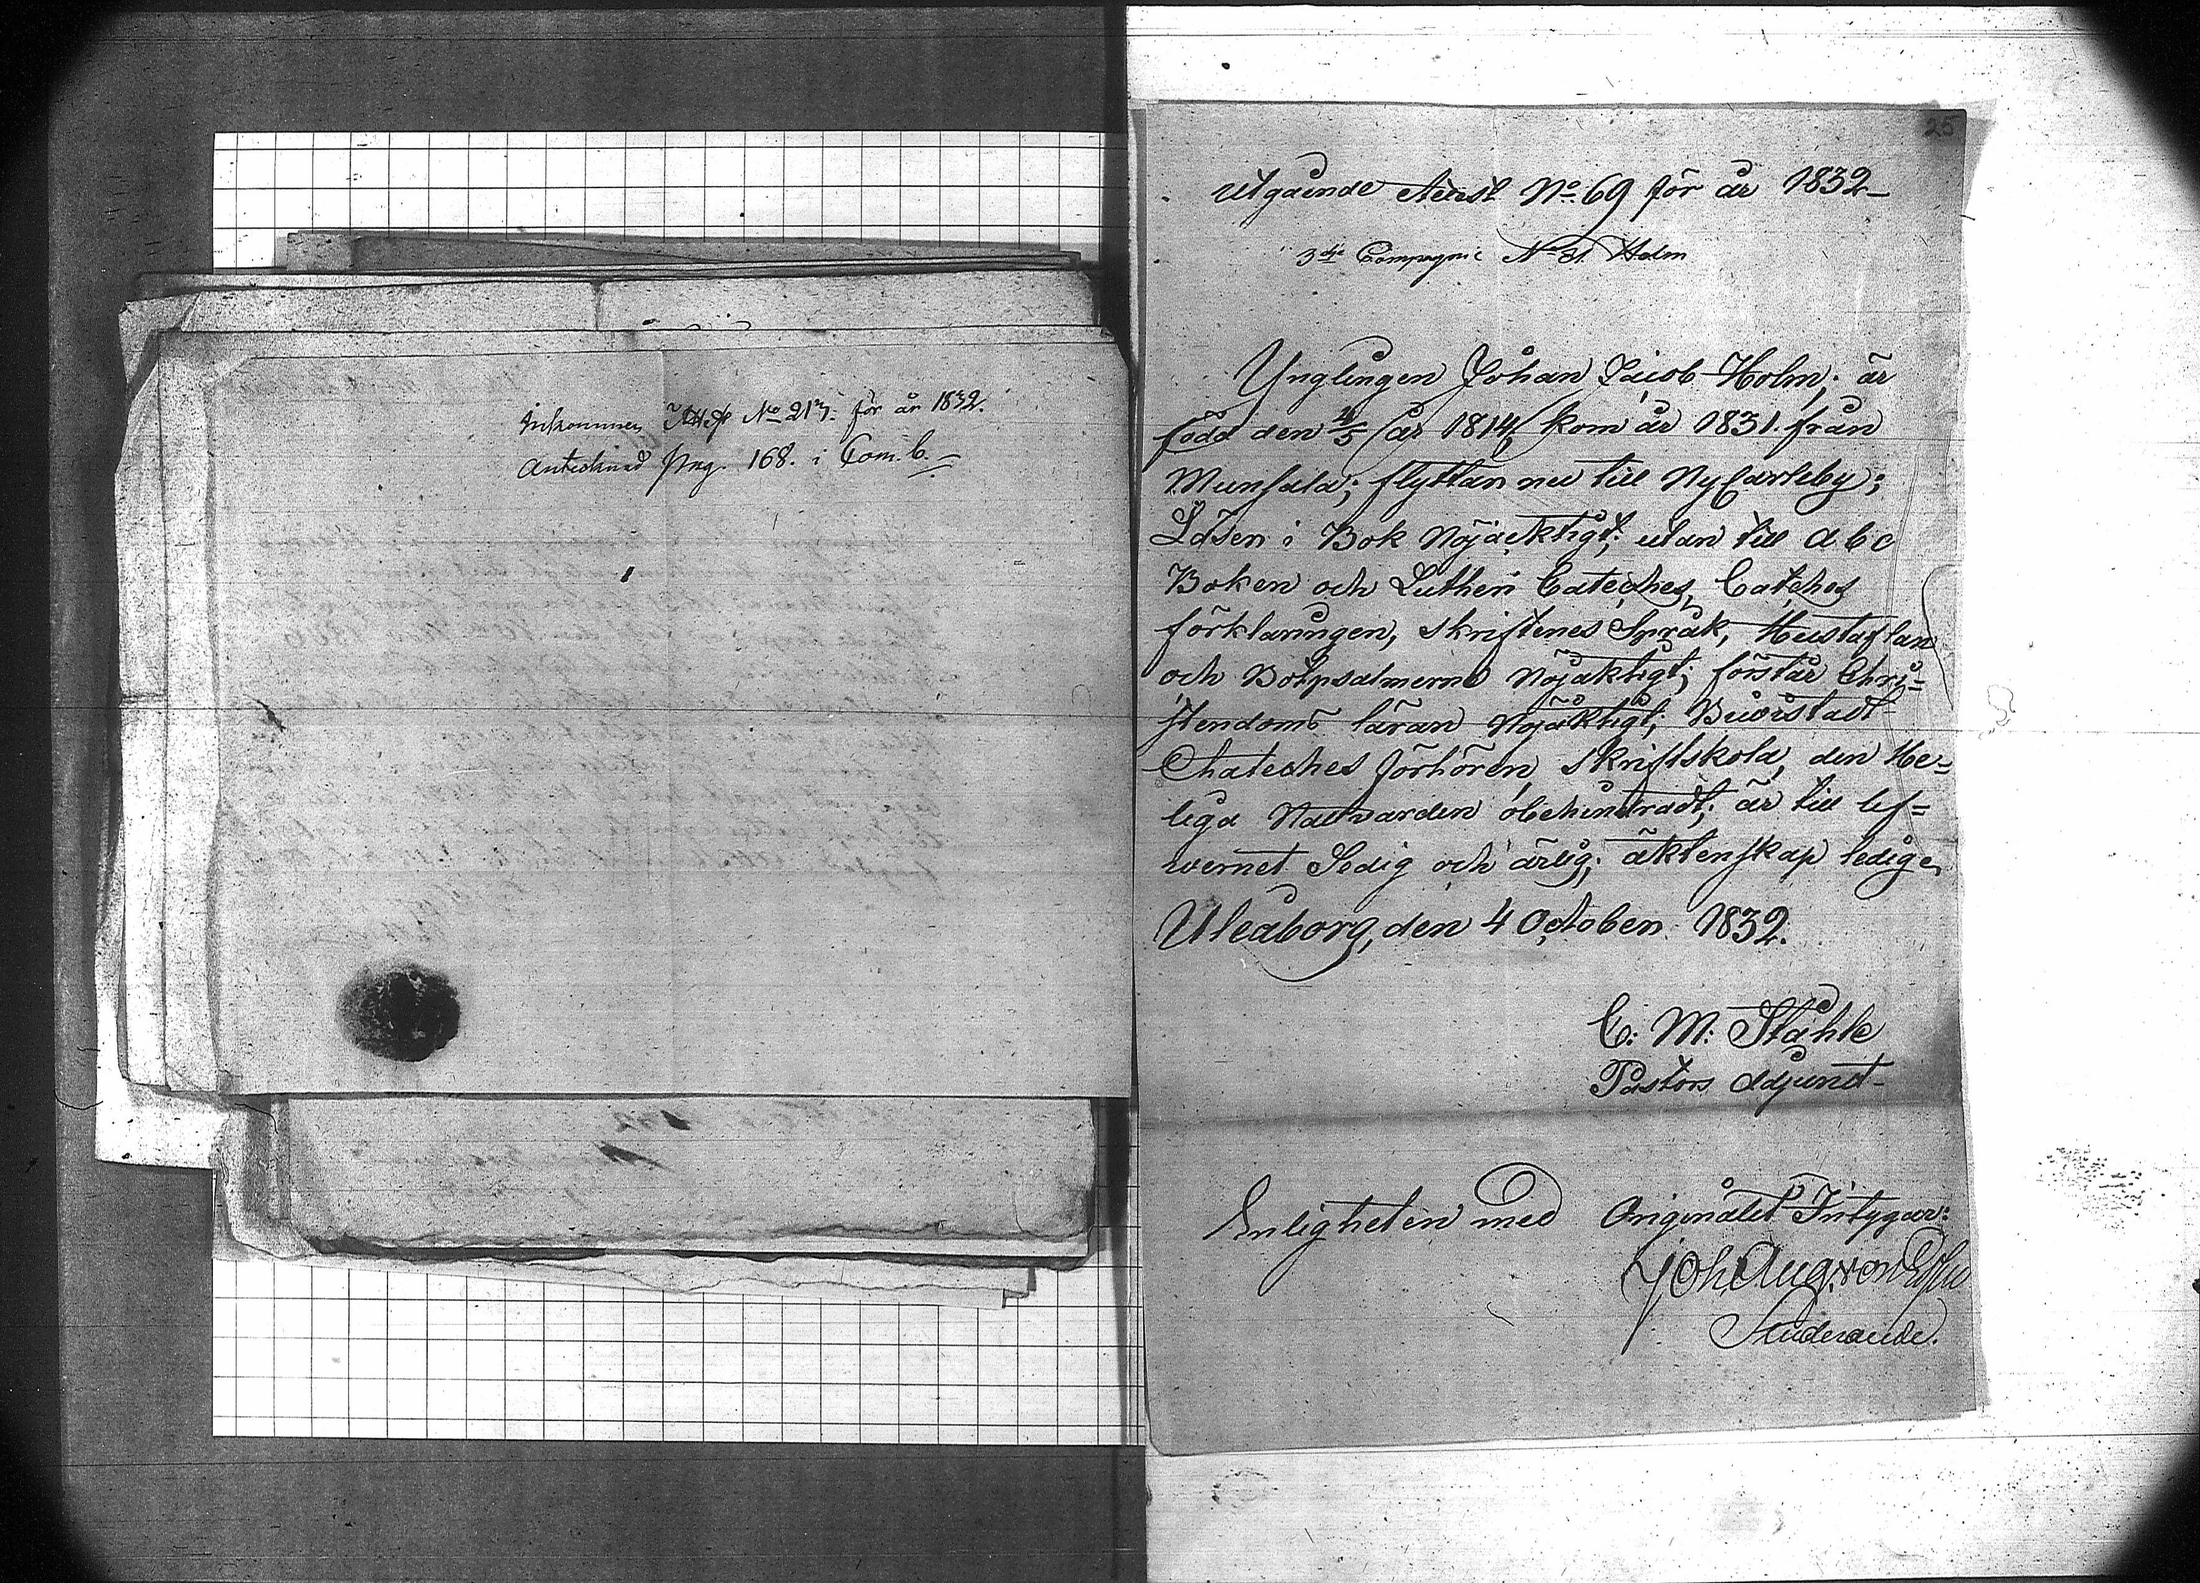 Inkommen Attest No 213. för år 1832.
Antecknad Pag. 168. i Com. b.
25
Utgående Attest No 69 för år 1832
3dje Compagnie No 31 Holm
Ynglingen Johan Jacob Holm, är
född den /5 år 1814, kom år 1831. från
Munsala; flyttar nu till NyCarleby;
Läser i Bok Nöjaktigt; utan till abc
Boken och Lutheri Cateches, Cateches
förklaringen, skriftenes Språk, Hustaflan
och Botpsalmerne Nöjaktigt; förstår Chri=
stendoms läran Nöjaktigt; Biwistadt
Chateches förhören, Skriftskola, den He=
liga Nattvarden obehindradt; är till lef=
wernet Sedig och ärlig; äktenskap ledig.
Uleåborg, den 4 October 1832.
C: M: Ståhle
Pastors Adjunct
Enligheten med Originalet Intygar:
Joh. Aug. von
Studerande.